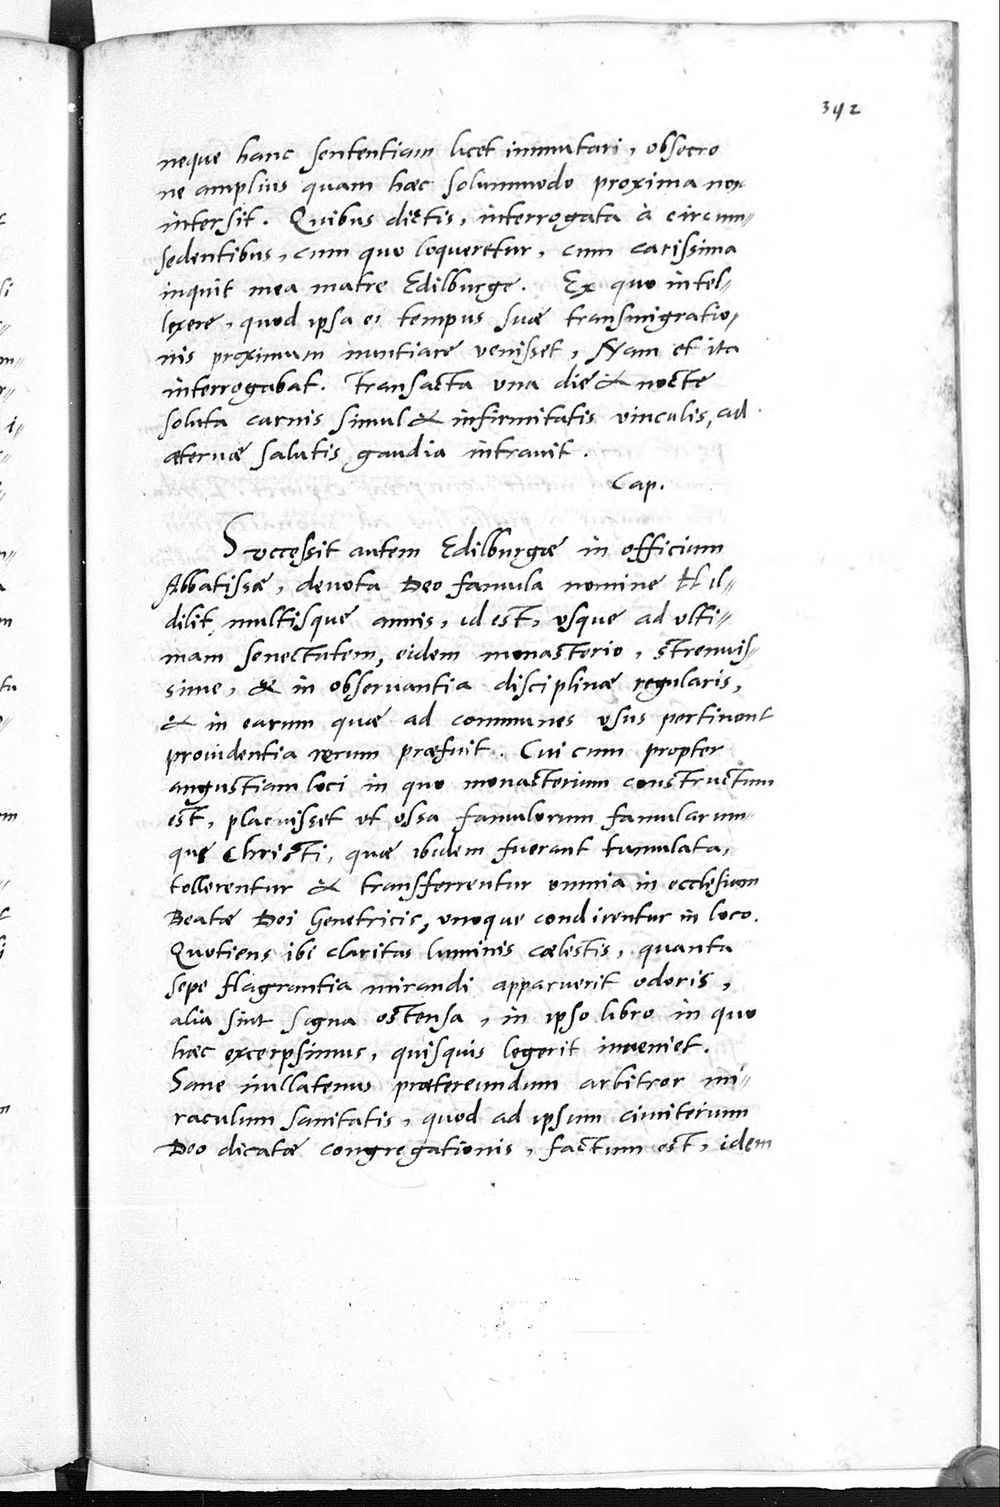 342
neque hanc sententiam licet immutari, obsecro
ne amplius quam hæc solummodo proxima nox
intersit. Quibus dictis, interrogata à circum-
sedentibus, cum quo loqueretur, cum carissima
inquit mea matre Edilburge. Ex quo intel-
lexere, quod ipsa ei tempus suæ transmigratio-
nis proximum nuntiare venisset, Nam et ita
interrogabat. transacta una die & nocte
soluta carnis simul & infirmitatis vinculis, ad
æternæ salutis gaudia intravit.
Cap.
Successit autem Edilburgæ in officium
Abbatissæ, devota Deo famula nomine Hil-
dilit, multisque annis, id est, usque ad ulti-
mam senectutem, eidem monasterio, strenuis-
sime, & in observantia disciplinæ regularis,
& in earum quæ ad communes usus pertinent
providentia rerum præfuit. Cui cum propter
angustiam loci in quo monasterium constructum
est, placuisset ut ossa famulorum famularum-
que Christi, quæ ibidem fuerant tumulata,
tollerentur & transferrentur omnia in ecclesiam
Beatæ Dei Genetricis, unoque condirentur in loco.
Quotiens ibi claritas luminis cælestis, quanta
sepe flagrantia mirandi apparuerit odoris,
alia sint signa ostensa, in ipso libro in quo
hæc excerpsimus, quisquis legerit inveniet.
Sane nullatenus prætereundum arbitror mi-
raculum sanitatis, quod ad ipsum cimiterium
Deo dicatæ congregationis, factum est, idem